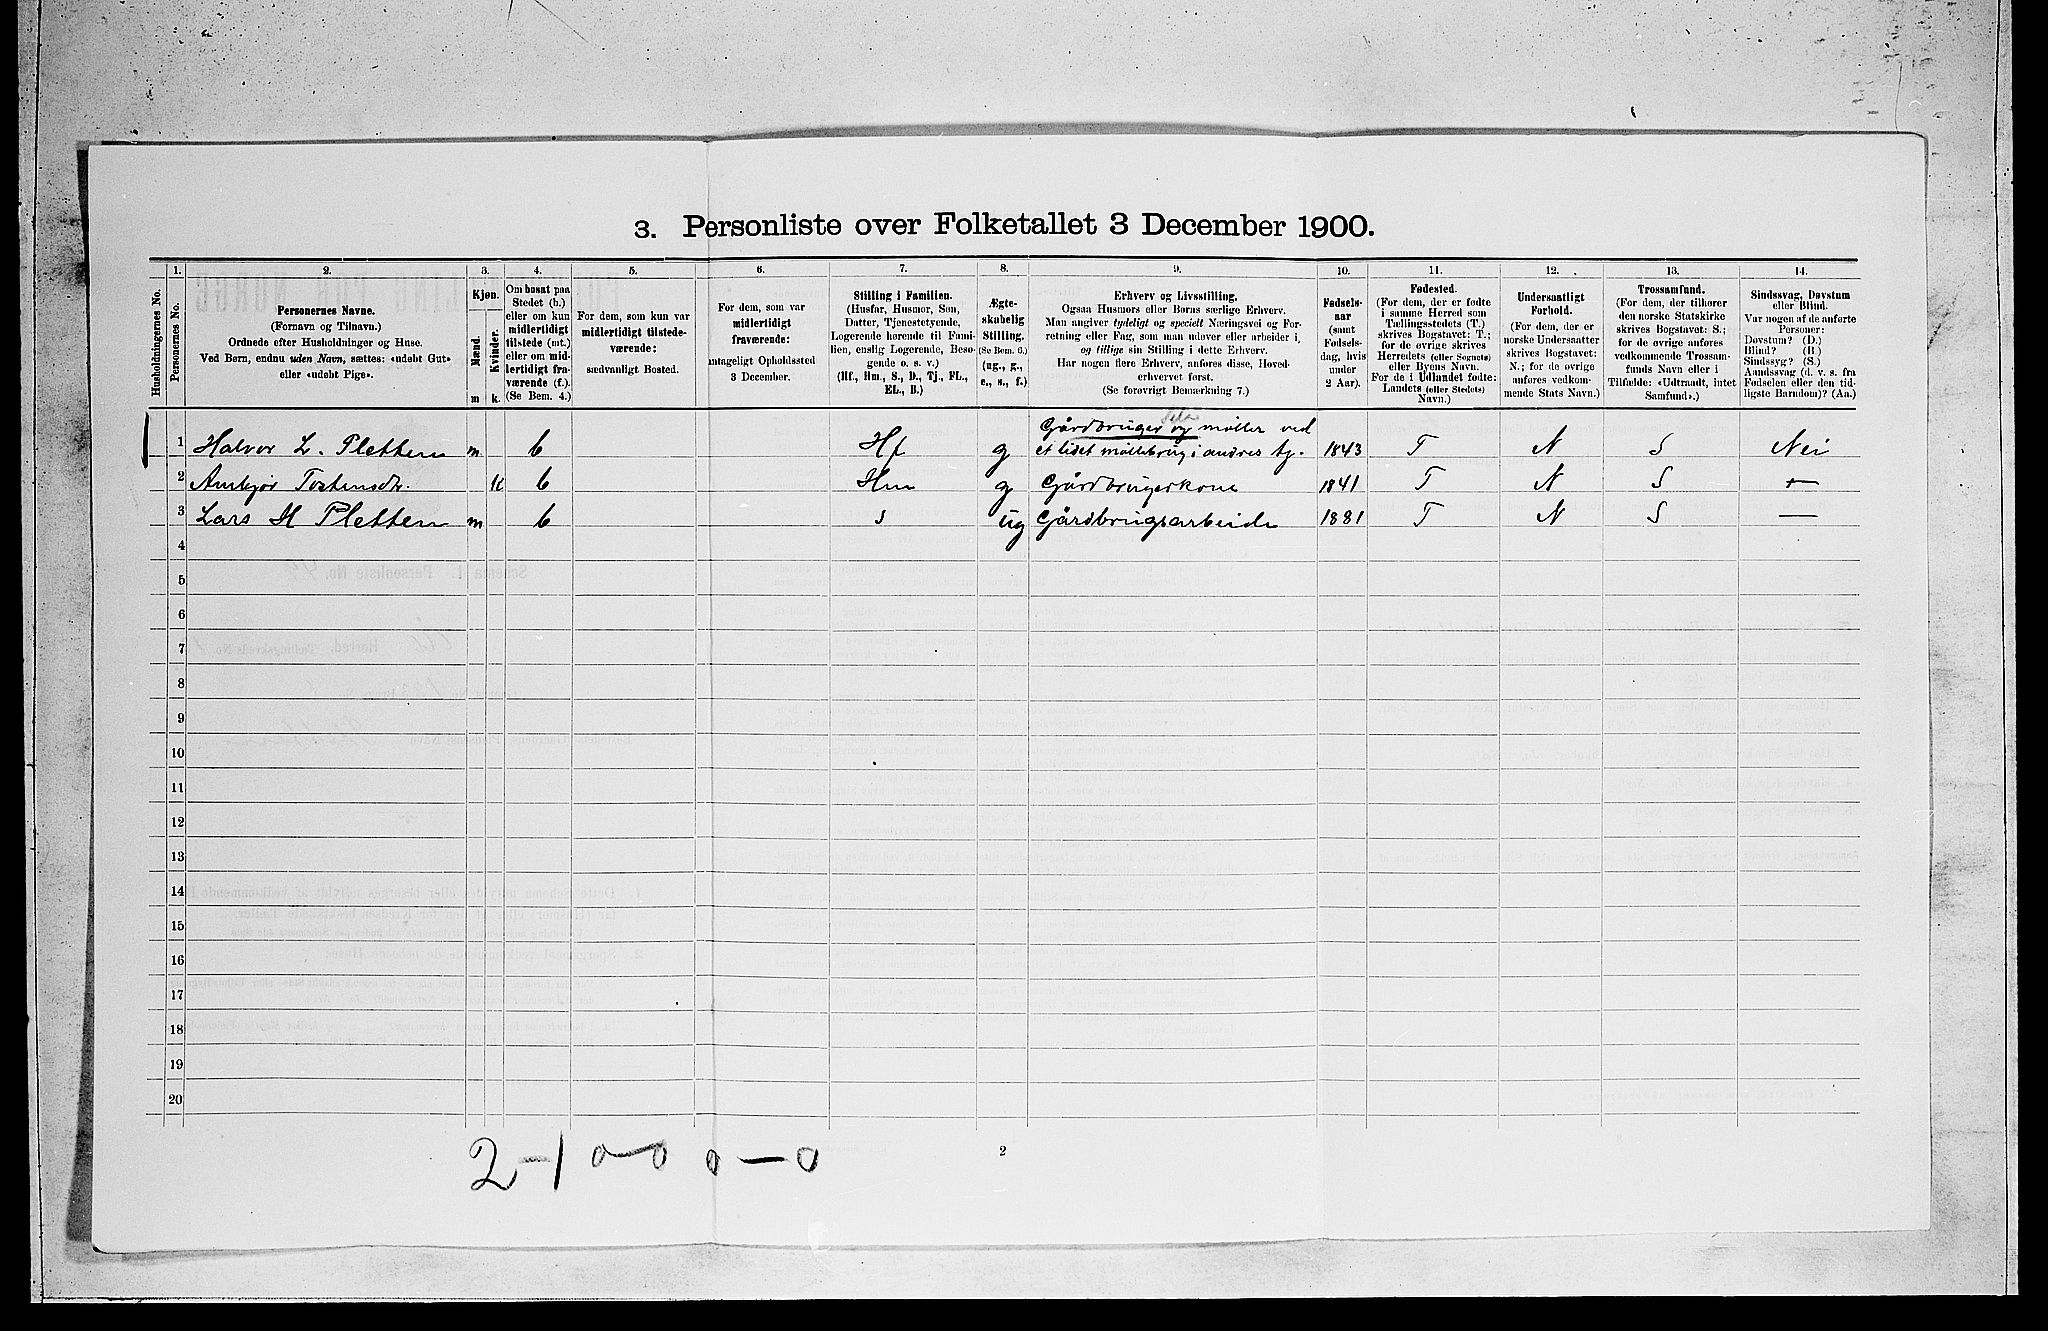 3. Personliste over Folketallet 3 December 1900.
1. 2. 3. 4. 5. 6. 7. 8. 9. 10. 11. 12. 13. 14.
Husholdningernes No.
Personernes No.
Personernes Navne.
(Fornavn og Tilnavn.)
Ordnede efter Husholdninger og Huse.
Ved Børn, endnu uden Navn, sættes: «udøbt Gut»
eller «udøbt Pige».
Kjøn.
Mænd.
Kvinder.
m k.
Om bosat paa
Stedet (b.)
eller om kun
midlertidigt
tilstede (mt.)
eller om mid-
lertidigt fra-
værende (f.).
(Se Bem. 4.)
For dem, som kun var
midlertidigt tilstede-
værende:
sædvanligt Bosted.
For dem, som var
midlertidigt
fraværende:
antageligt Opholdssted
3 December.
Stilling i Familien.
(Husfar, Husmor, Søn,
Datter, Tjenestetyende,
Logerende hørende til Fami-
lien, enslig Logerende, Besø-
gende o. s. v.)
(Hf., Hm., S., D., Tj., FL.,
EL., B.)
Ægte-
skabelig
Stilling.
(Se Bem. 6.)
(ug., g.,
e., s., f.)
Erhverv og Livsstilling.
Ogsaa Husmors eller Børns særlige Erhverv.
Man angiver tydeligt og specielt Næringsvei og For-
retning eller Fag, som man udøver eller arbeider i,
og tillige sin Stilling i dette Erhverv.
Har nogen flere Erhverv, anføres disse, Hoved-
erhvervet først.
(Se forøvrigt Bemærkning 7.)
Fødsels-
aar
(samt
Fødsels-
dag, hvis
under
2 Aar).
Fødested.
(For dem, der er fødte
i samme Herred som
Tællingsstedets (T.)
skrives Bogstavet: T.;
for de øvrige skrives
Herredets (eller Sognets)
eller Byens Navn.
For de i Udlandet fødte:
Landets (eller Stedets)
Navn.)
Undersaatligt
Forhold.
(For dem, der er
norske Undersaatter
skrives Bogstavet:
N.; for de øvrige
anføres vedkom-
mende Stats Navn.)
Trossamfund.
(For dem, der tilhører
den norske Statskirke
skrives Bogstavet: S.;
for de øvrige anføres
vedkommende Trossam-
funds Navn eller i
Tilfælde: «Udtraadt, intet
Samfund».)
Sindssvag, Døvstum
eller Blind.
Var nogen af de anførte
Personer:
Døvstum? (D.)
Blind? (B.)
Sindssyg? (S.)
Aandssvag (d. v. s. fra
Fødselen eller den tid-
ligste Barndom)? (Aa.)
1 Halvor L. Pletten m b Hf g Gårdbruger og møller ved
et lidet møllebrug i andres tj. 1843 T N S Nei
2 Ambjør Tostensdtr. k b Hm g Gårdbrugerkone 1841 T N S —
3 Lars H Pletten m b S ug Gårdbrugsarbeide 1881 T N S —
4
5
6
7
8
9
10
11
12
13
14
15
16
17
18
19
20
2-1 0-0 0-0
2